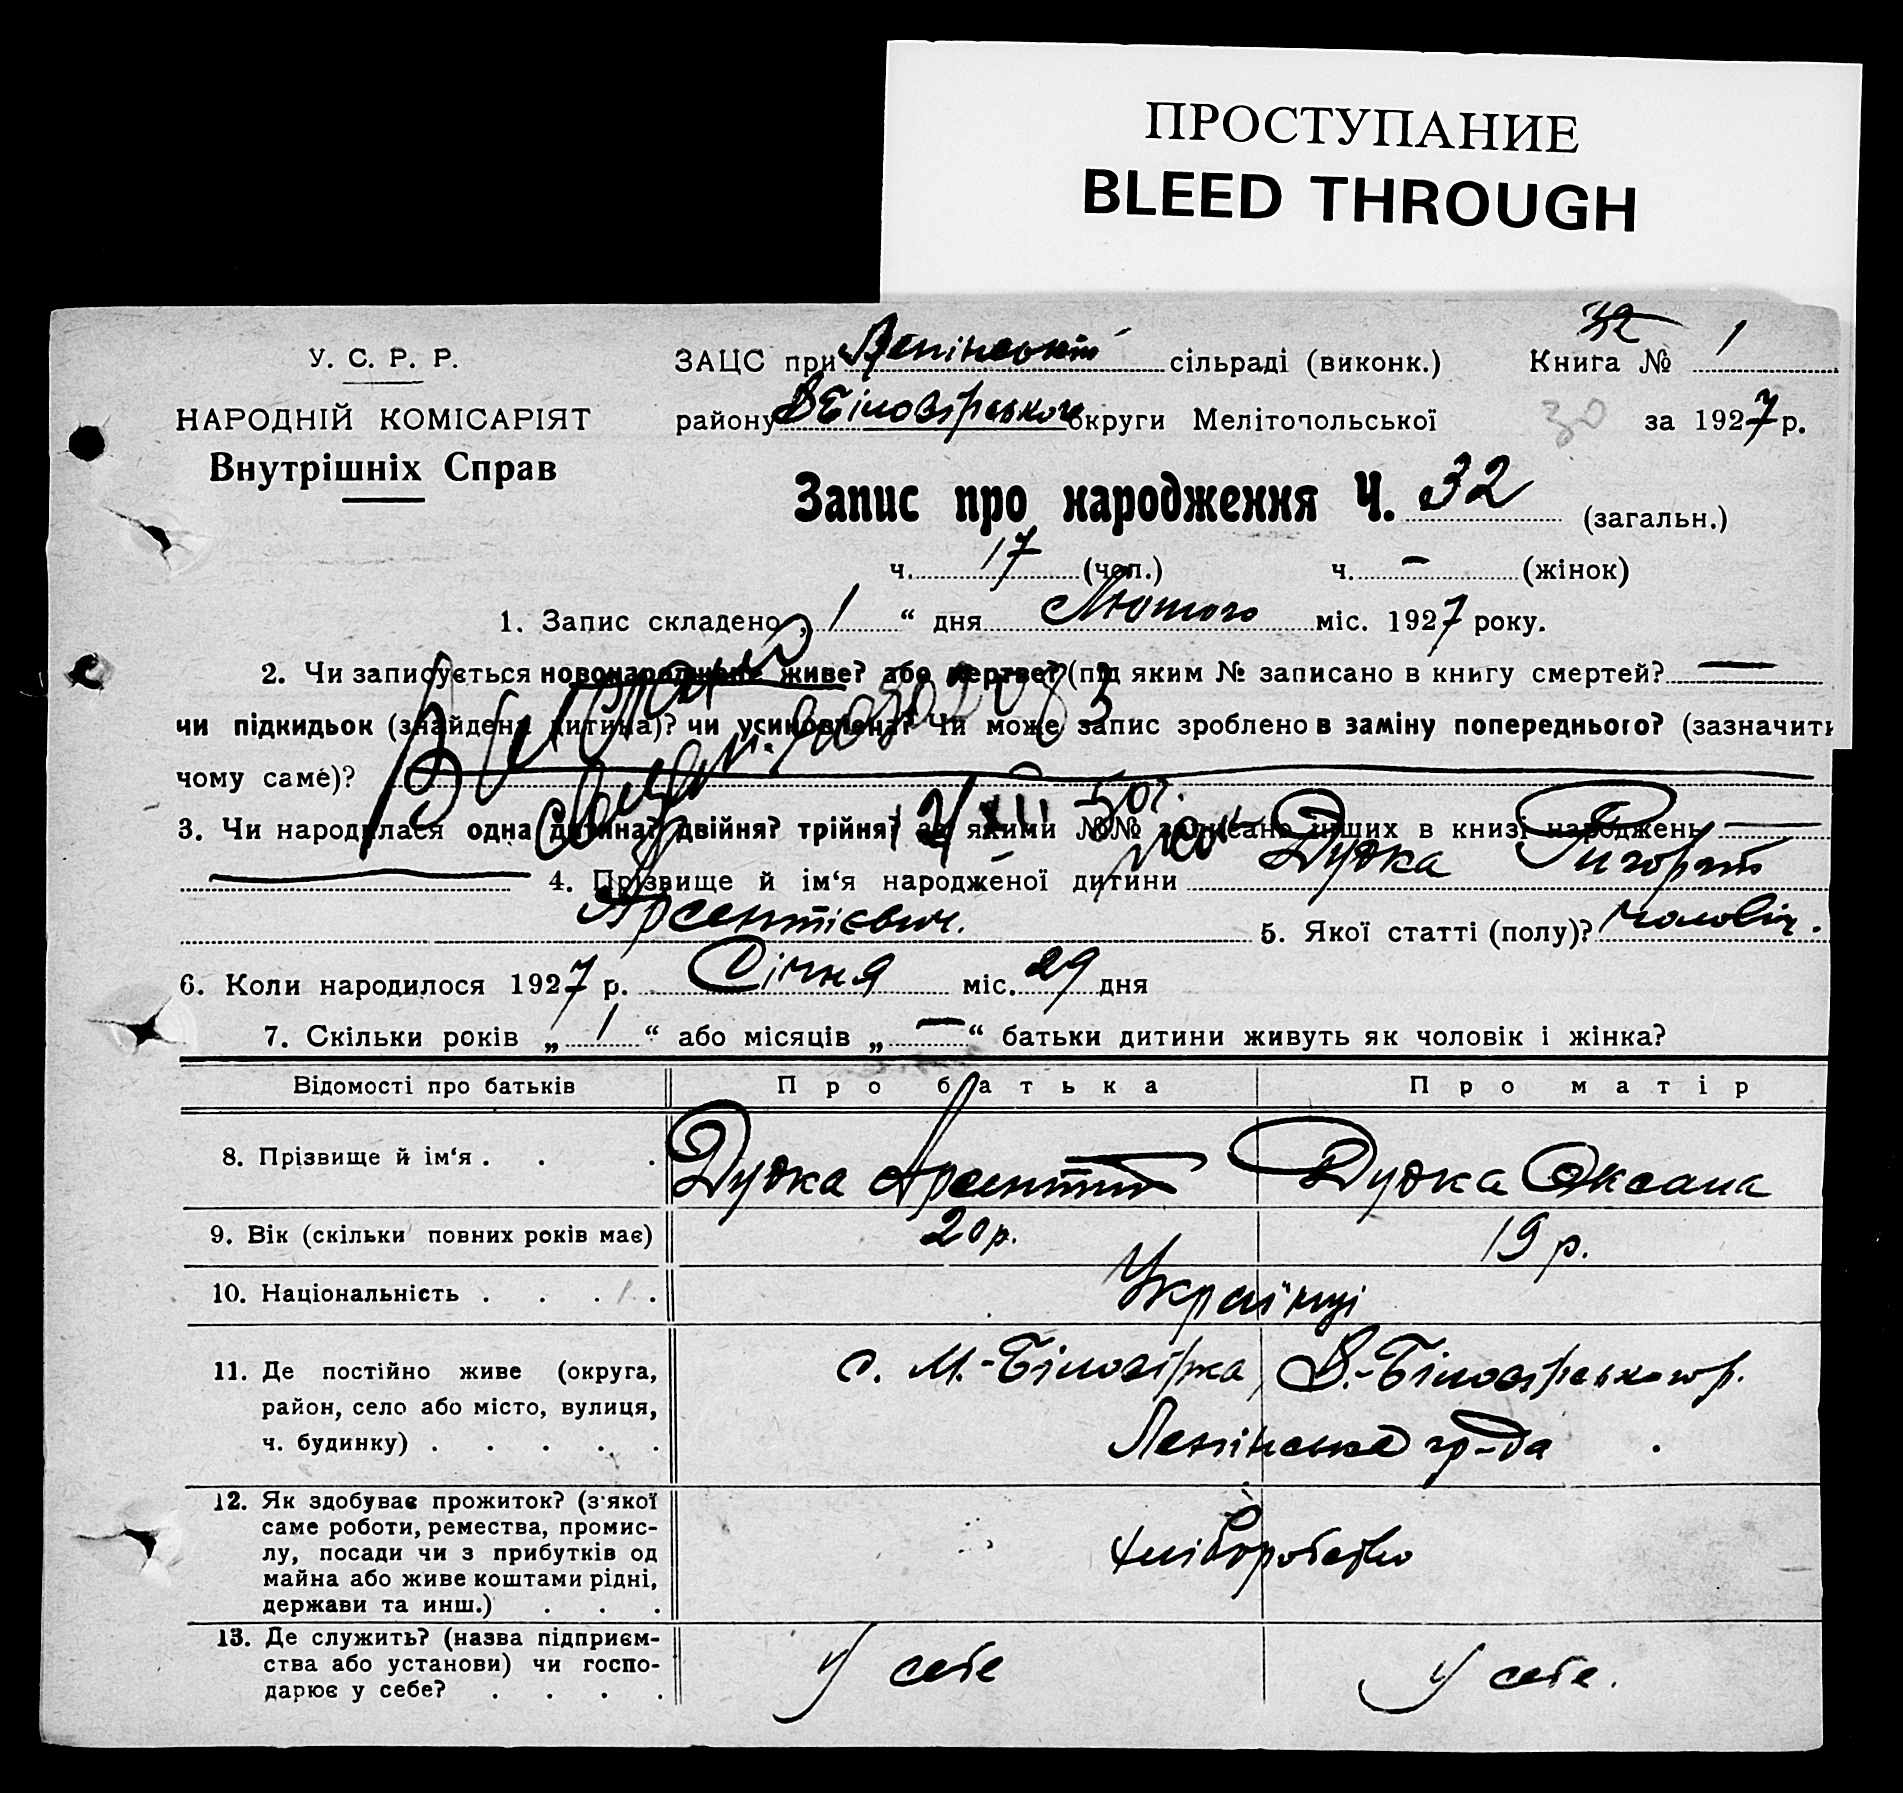 ПРОСТУПАНИЕ
BLEED THROUGH
32
У. С. Р. Р.
ЗАЦС при Ленінській сільраді (виконк.) Книга № 1
НАРОДНІЙ КОМІСАРІЯТ
району В Білозірського округи Мелітопольської 30 за 1927 р.
Внутрішніх Справ
Запис про народження Ч. 32 (загальн.)
ч. 17 (чол.) ч. – (жінок)
1. Запис складено „ 1 “ дня Лютого міс. 1927 року.
2. Чи записується новонароджене живе? або мертве? (під яким № записано в книгу смертей? —
чи підкидьок (знайдена дитина)? чи усиновлена? Чи може запис зроблено в заміну попереднього? (зазначить
чому саме)?
Видано
3. Чи народилася одна дитина? двійня? трійня? за якими №№ записано інших в книзі народжень —
4. Прізвище й ім‘я народженої дитини Дудка Григорій
Арсентієвич. 5. Якої статті (полу)? чоловіч.
6. Коли народилося 1927 р. Січня міс. 29 дня
7. Скільки років „ 1 “ або місяців „ — “ батьки дитини живуть як чоловік і жінка?
Відомості про батьків Про батька Про матір
8. Прізвище й ім‘я . . . Дудка Арсентий Дудка Оксана
9. Вік (скільки повних років має) 20 р. 19 р.
10. Національність . . . . Українці
11. Де постійно живе (округа, с. М.-Білозірка, В.-Білозірського р.
район, село або місто, вулиця,
ч. будинку) . . . . . Ленінська гр-да
12. Як здобуває прожиток? (з'якої
саме роботи, ремества, промис-
лу, посади чи з прибутків од хліборобство
майна або живе коштами рідні,
держави та инш.) . . .
13. Де служить? (назва підприєм-
ства або установи) чи госпо- у себе у себе.
дарює у себе? . . . .